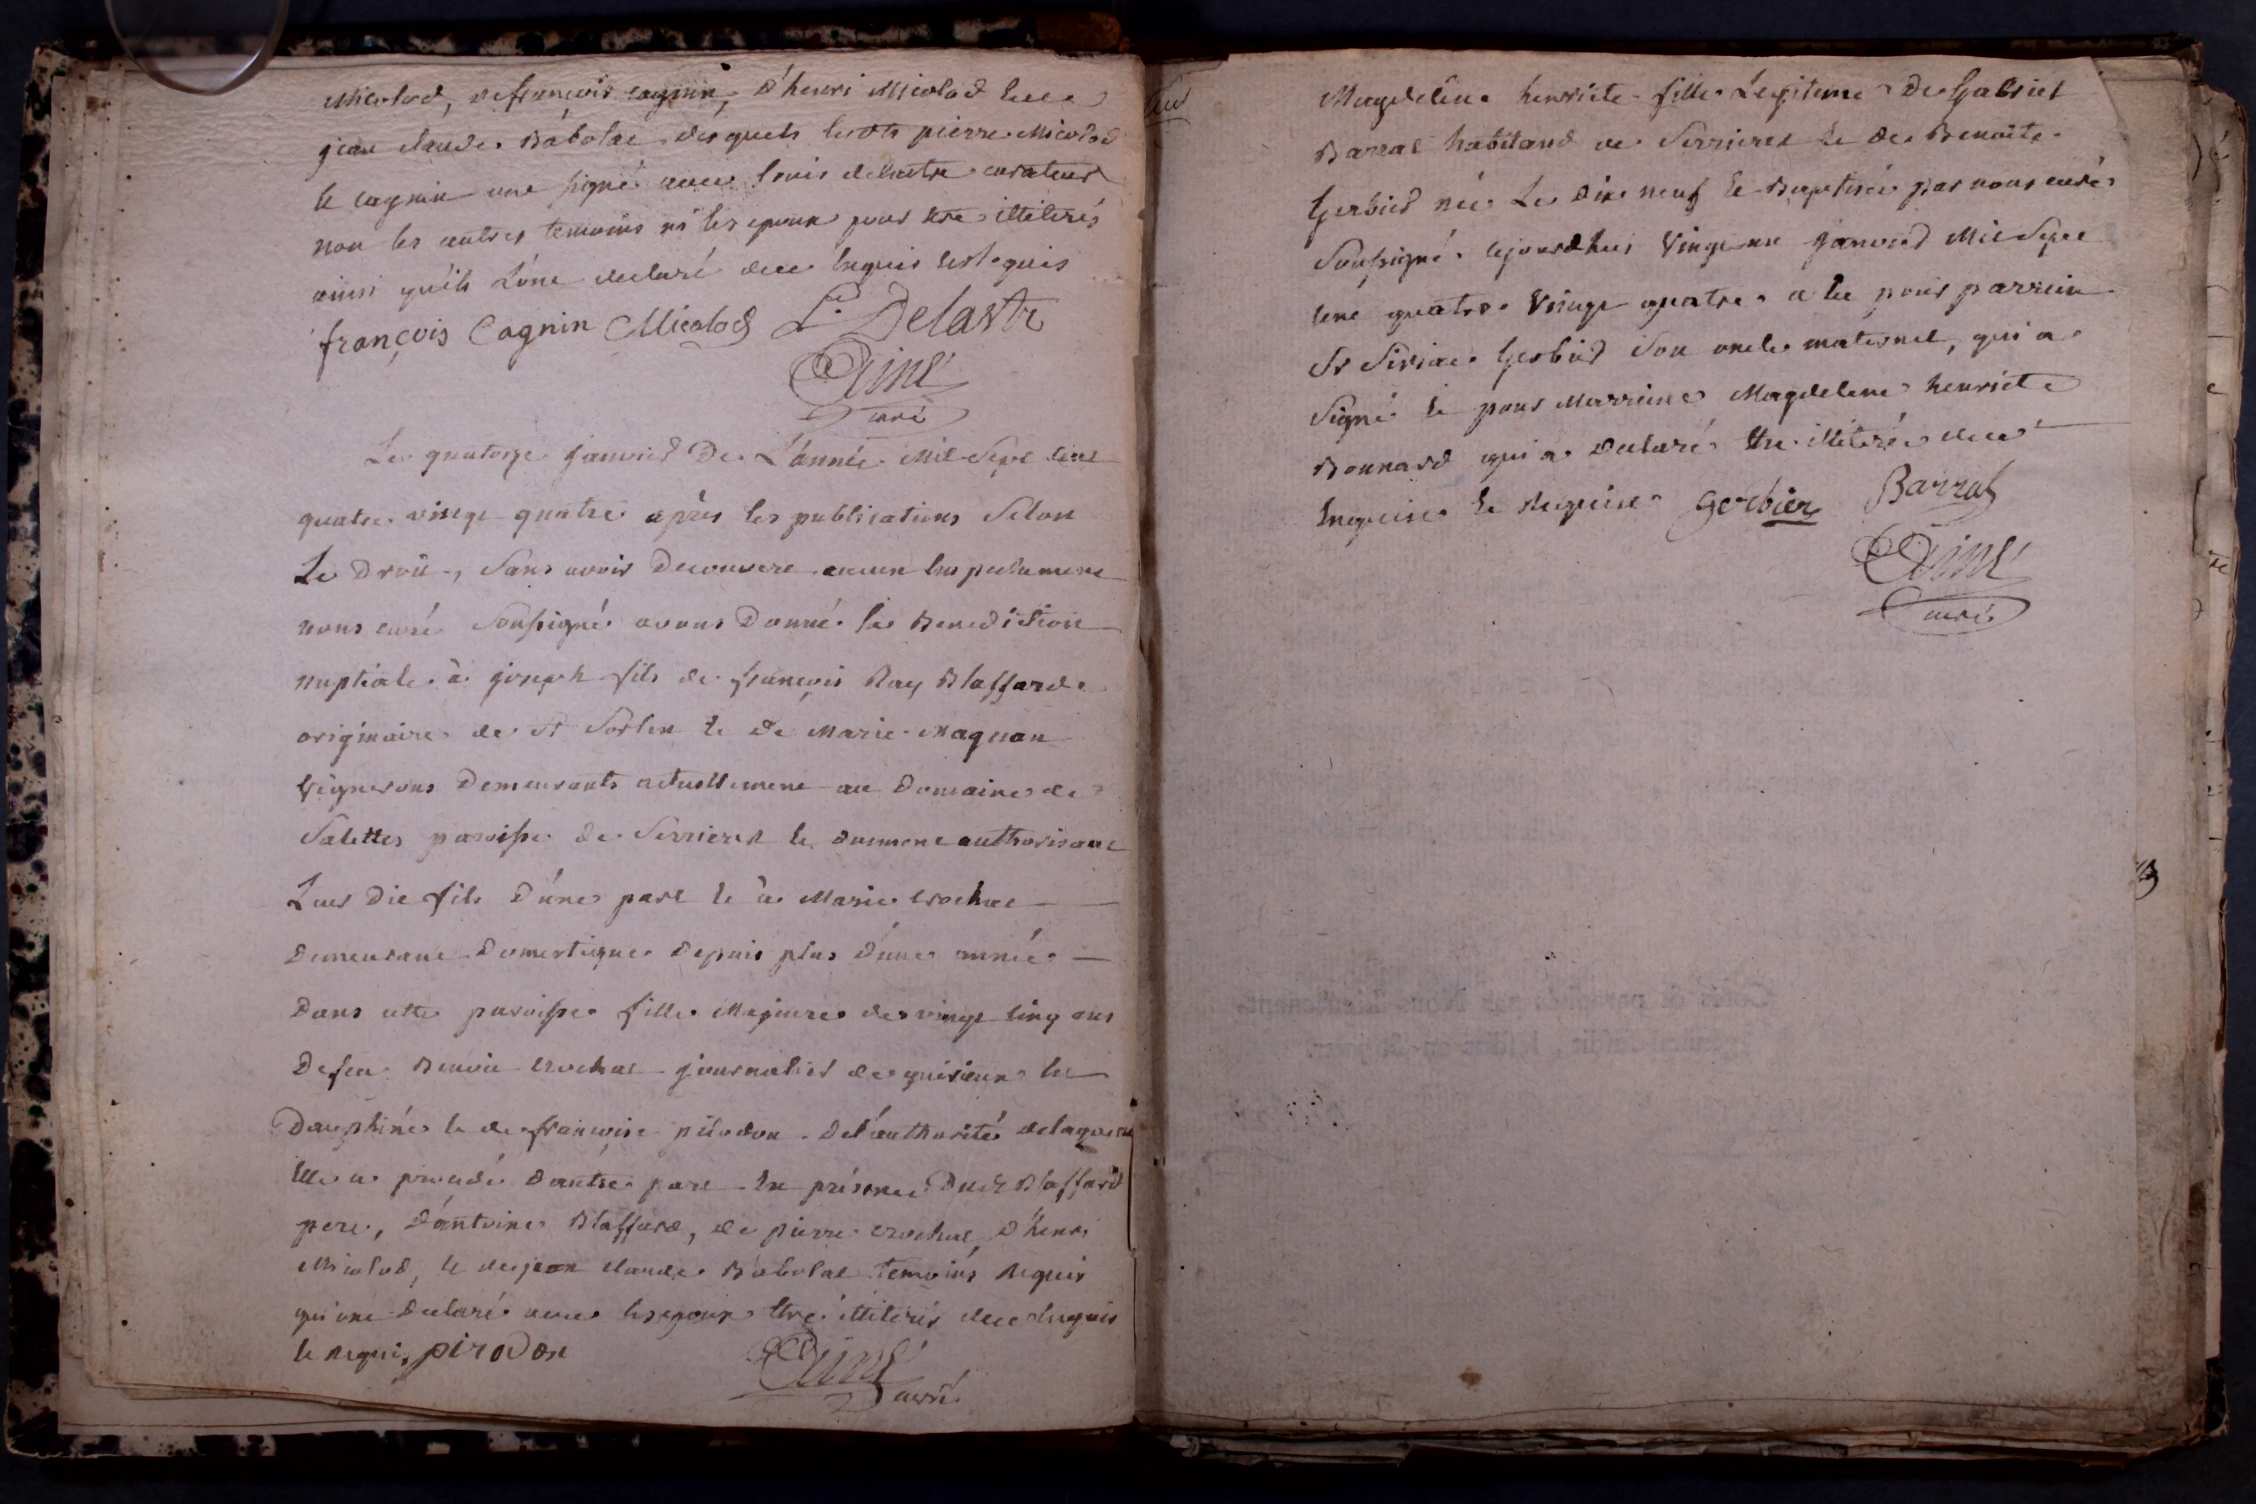 Micolod, de françois cagnin, d'henri Micolod et de
jean claude Babolat desquels lesdts pierre Micolod
et cagnin ont signé avec Louis delastre curateur
non les autres temoins ni les epoux pour etre illiterés
ainsi qu'ils L'ont declaré de ce enquis et requis
françois Cagnin Micolod L. Delastre
Ainé
curé
Le quatorze janvier De L'année Mil Sept cent
quatre vingt quatre après les publications Selon
Le Droit, Sans avoir Decouvert aucun Empechement
nous curé Soussigné avons Donné la Benediction
nuptiale à joseph fils de françois Ray Blaffard
originaire de St Sorlin et de Marie Magnan
Vignerons Demeurants actuellement au Domaine de
Salettes paroisse de Serrieres et duement authorisant
Leur Dit fils D'une part et à Marie crochat
Demeurant Domestique Depuis plus d'une année
Dans cette paroisse fille Majeure de vingt cinq ans
De feu Benoit crochat journalier de quirieux en
Dauphiné et de françoise pirodon de l'authorité de laquelle
Elle a procedé d'autre part En présence Dudt Blaffard
pere, d'antoine Blaffard, de pierre crochat, d'henri
Micolod, et de jean claude Babolat temoins Requis
qui ont Declaré avec les epoux Etre illiterés de ce enquis
et Requis, pirodon
Ainé
curé
Magdeleine henriete fille Legitime De Gabriel
Barral habitant de Serrieres et de Benoite
Gerbier née Le dix neuf et Baptisée par nous curé
Soussigné cejourdhui Vingt un janvier Mil Sept
cent quatre Vingt quatre a eu pour parrein
Sr Gerbier Son oncle maternel, qui a
Signé et pour Marreine Magdelene henriete
Bonnard qui a Declaré Etre illiterée de ce
Enquise et Requise Gerbier Barral
Ainé
curé